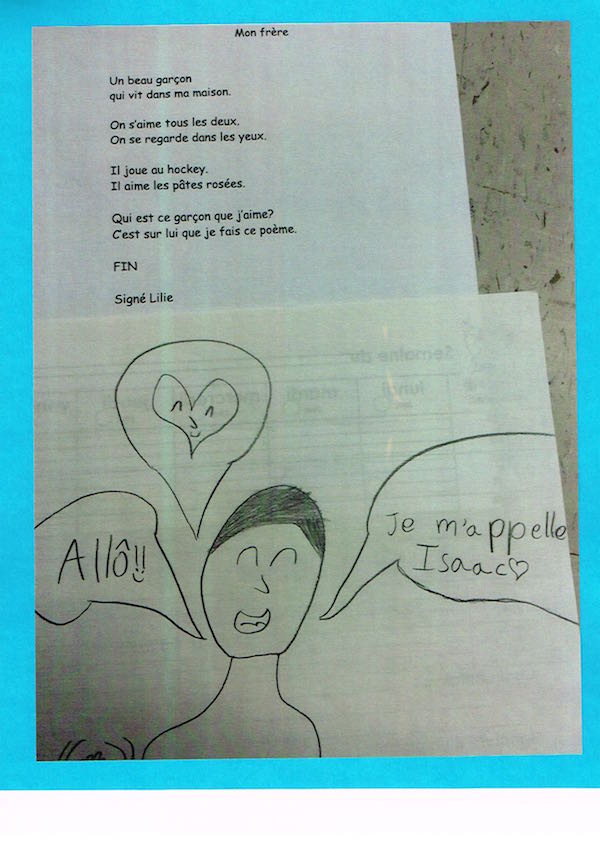 Mon frère
Un beau garçon
qui vit dans ma maison.
On s'aime tous les deux.
On se regarde dans les yeux.
Il joue au hockey.
Il aime les pâtes rosées.
Qui est ce garçon que j'aime?
C'est sur lui que je fais ce poème.
FIN
Signé Lilie
Semaine du
lundi
mardi
mercredi
Allô!!
Je m'appelle
Isaac